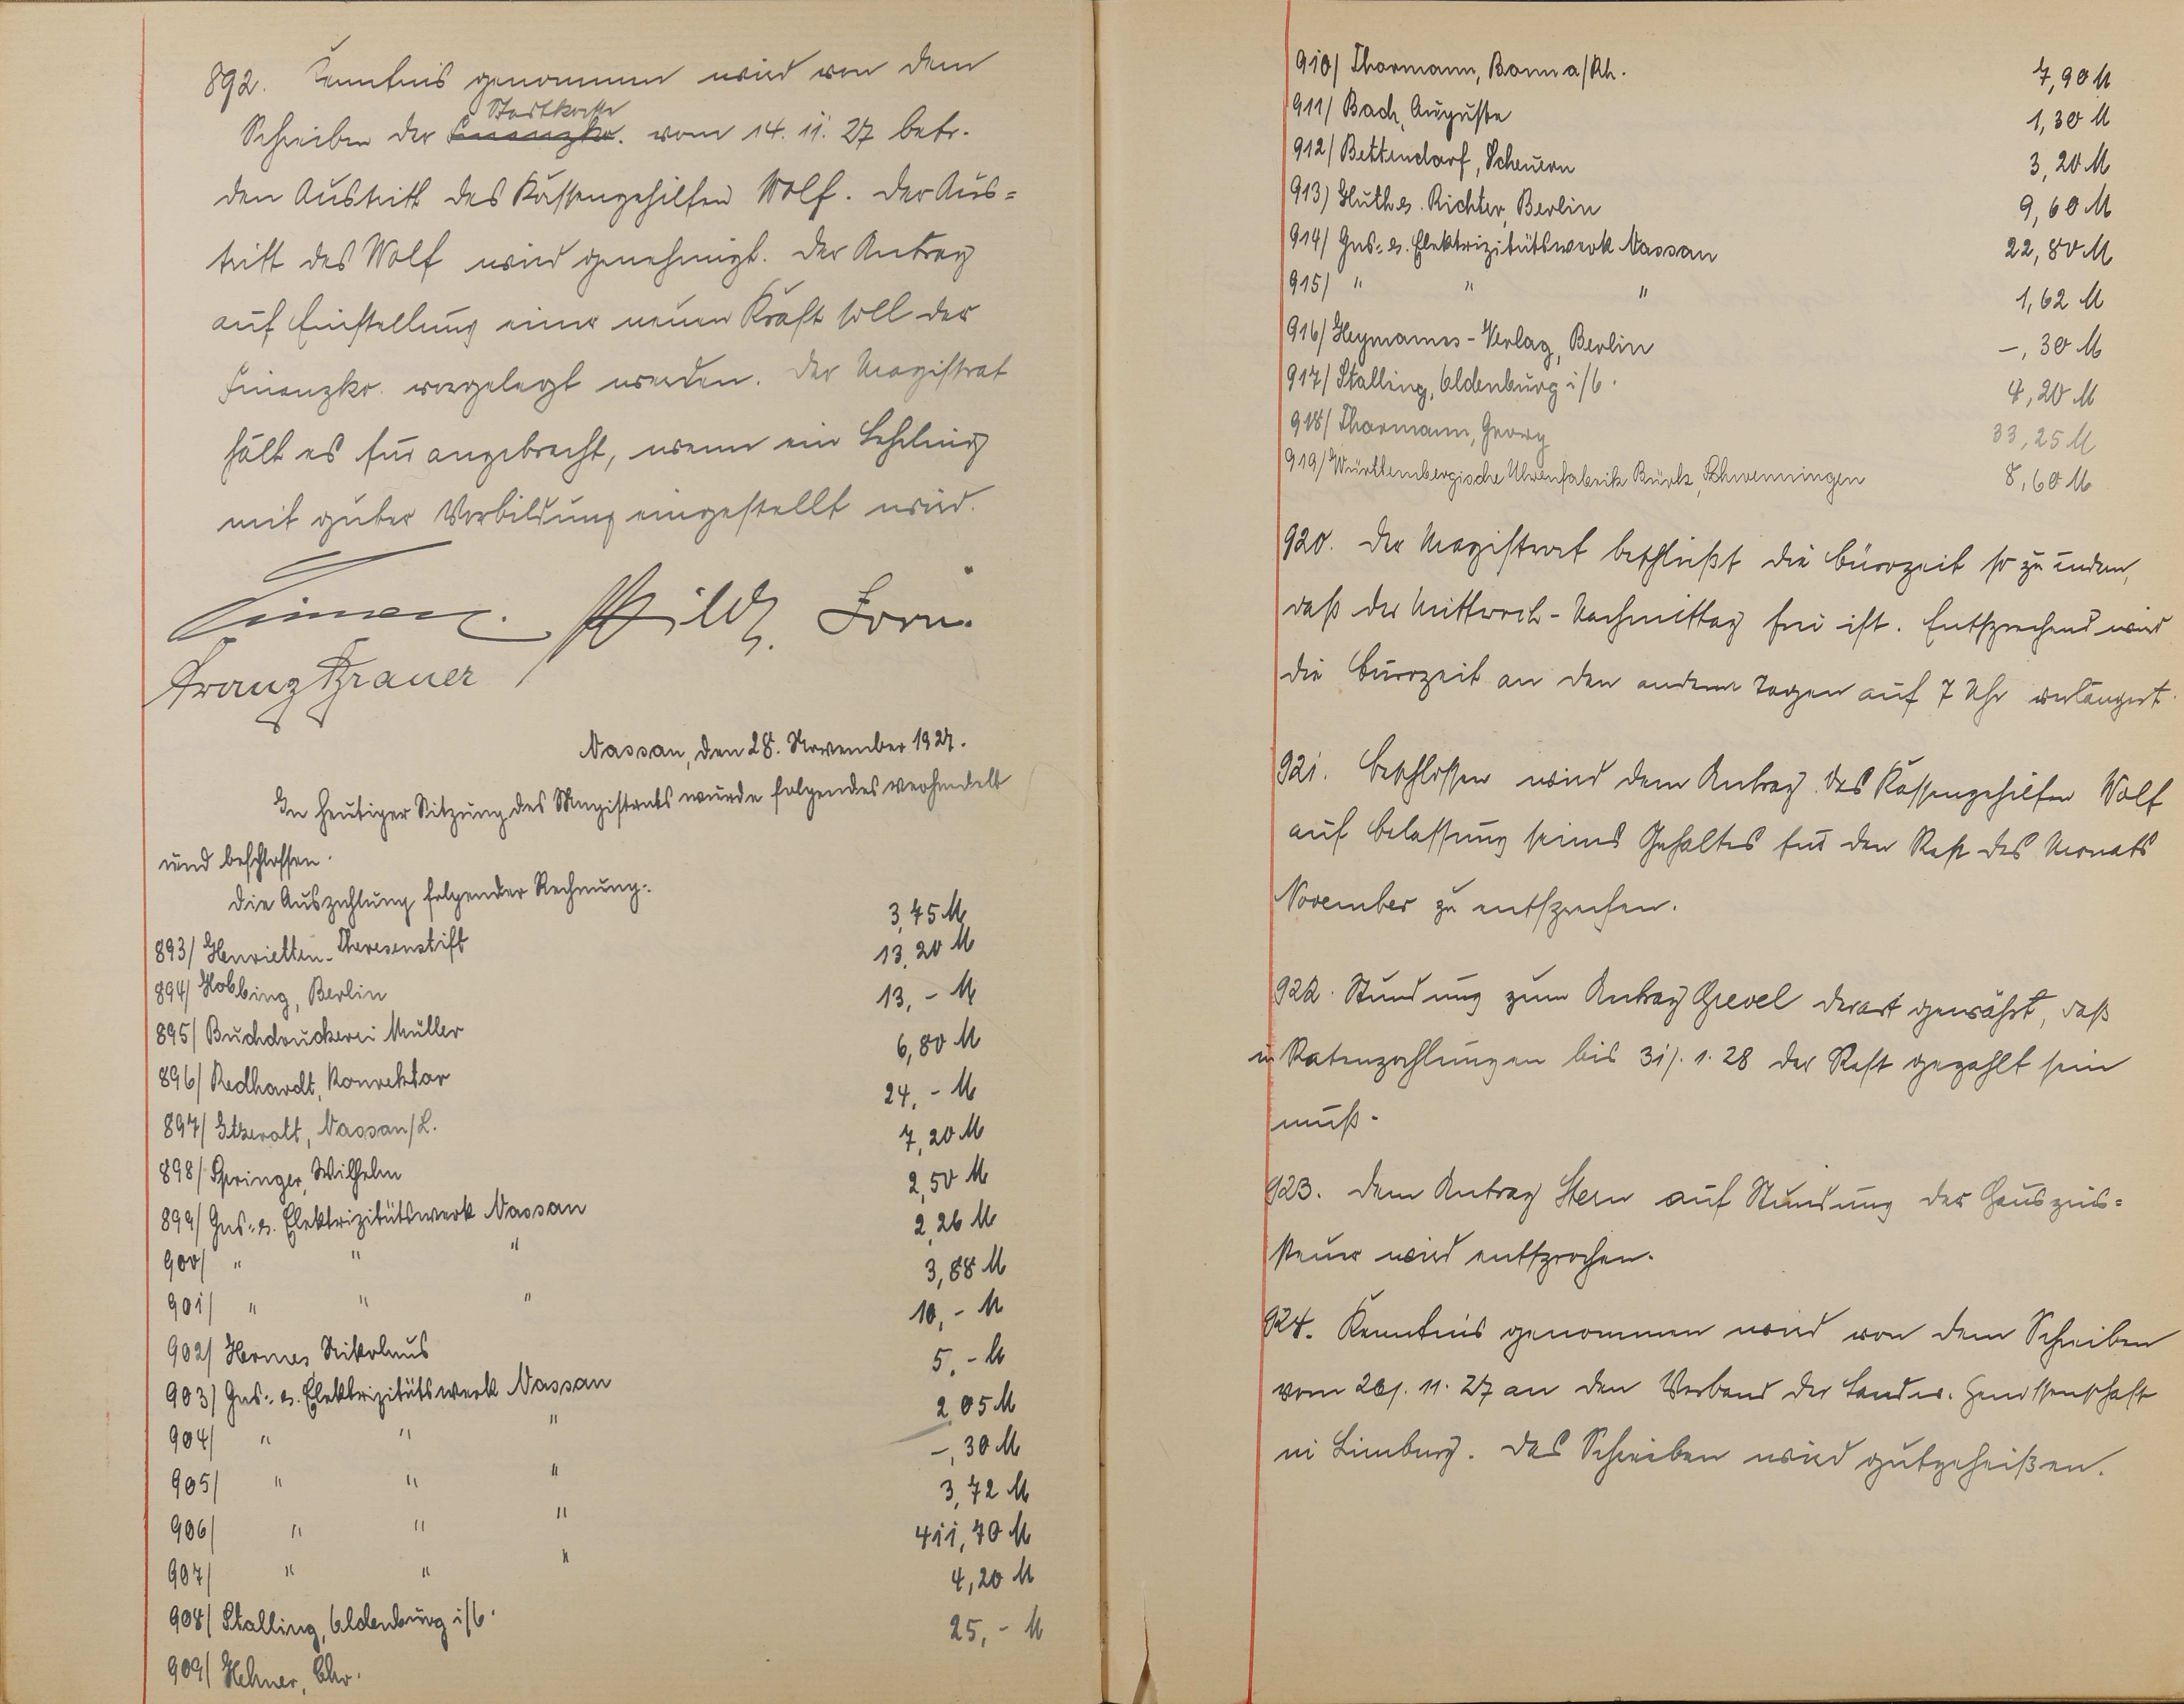 892. Kenntnis genommen wird von dem
Stadtkasse
Schreiben der Finanzko. vom 14. 11. 27 betr.
den Austritt des Kassengehilfen Wolf. Der Aus=
tritt des Wolf wird genehmigt. Der Antrag
auf Einstellung einer neuen Kraft soll der
Finanzko. vorgelegt werden. Der Magistrat
hält es für angebracht, wenn ein Lehrling
mit guter Vorbildung eingestellt wird.
Hild Zorn.
Franz Brauer
Nassau, den 28. November 1927.
In heutiger Sitzung des Magistrats wurde folgendes verhandelt
und beschlossen.
Die Auszahlung folgender Rechnung:
893/ Henrietten-Theresenstift 3,45 M
894/ Hobbing, Berlin 13,20 M
895/ Buchdruckerei Müller 13,- M
896/ Redhardt, Konrektor 6,80 M
897/ Etzerott, Nassau/L. 24,- M
898/ Springer, Wilhelm 7,20 M
899/ Gas- u. Elektrizitätswerk Nassau 2,50 M
900/ " " " 2,26 M
901/ " " " 3,88 M
902/ Hermes Nikolaus 10,- M
903/ Gas- u. Elektrizitätswerk Nassau 5,- M
904/ " " " 2,05 M
905/ " " " -,30 M
906/ " " " 3,72 M
907/ " " " 411,70 M
908/ Stalling, Oldenburg i/O. 4,20 M
909/ Hehner, Chr. 25,- M
910/ Thormann, Bonn a/Rh. 7,90 M
911/ Bach, Auguste 1,30 M
912/ Bettendorf, Scheuern 3,20 M
913/ Huth u. Richter, Berlin 9,60 M
914/ Gas- u. Elektrizitätswerk Nassau 22,80 M
915/ " " " 1,62 M
916/ Heymanns-Verlag, Berlin -,30 M
917/ Stalling, Oldenburg i/O. 4,20 M
918/ Thormann, Georg 33,25 M
919/ Württembergische Uhrenfabrik Bürk, Schwenningen 8,60 M
920. Der Magistrat beschließt die Bürozeit so zu ändern,
daß der Mittwoch-Nachmittag frei ist. Entsprechend wird
die Bürozeit an den anderen Tagen auf 7 Uhr verlängert.
921. Beschlossen wird dem Antrag des Kassengehilfen Wolf
auf Belassung seines Gehaltes für den Rest des Monats
November zu entsprechen.
922. Stundung zum Antrag Grevel derart gewährt, daß
in Ratenzahlungen bis 31/. 1. 28 der Rest gezahlt sein
muß.
923. Dem Antrag Stern auf Stundung der Hauszins=
steuer wird entsprochen.
924. Kenntnis genommen wird von dem Schreiben
vom 26/. 11. 27 an den Verband der Landw. Genossenschaft
in Limburg. Das Schreiben wird gutgeheißen.